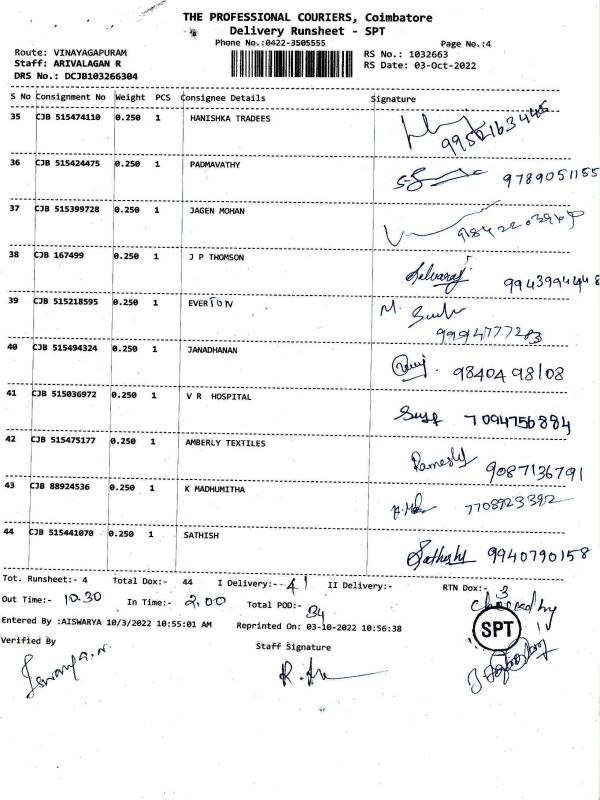 THE PROFESSIONAL COURIERS, Coimbatore
Delivery Runsheet - SPT
Phone No.:0422-3505555 Page No.:4
Route: VINAYAGAPURAM RS No.: 1032663
Staff: ARIVALAGAN R RS Date: 03-Oct-2022
DRS No.: DCJB103266304
S No Consignment No Weight PCS Consignee Details Signature
35 CJB 515474110 0.250 1 HANISHKA TRADEES
36 CJB 515424475 0.250 1 PADMAVATHY 9789051155
37 CJB 515399728 0.250 1 JAGEN MOHAN
38 CJB 167499 0.250 1 J P THOMSON Selvaraj 9943994448
39 CJB 515218595 0.250 1 EVERTON M.
40 CJB 515494324 0.250 1 JANADHANAN 98404 98108
41 CJB 515036972 0.250 1 V R HOSPITAL 7094756884
42 CJB 515475177 0.250 1 AMBERLY TEXTILES Ramesh 9087136791
43 CJB 88924536 0.250 1 K MADHUMITHA 7708923392
44 CJB 515441070 0.250 1 SATHISH Sathish 9940790158
Tot. Runsheet:- 4 Total Dox:- 44 I Delivery:-- 41 II Delivery:- RTN Dox:- 3
Out Time:- 10.30 In Time:- 2.00 Total POD:- 34 Checked by
Entered By :AISWARYA 10/3/2022 10:55:01 AM Reprinted On: 03-10-2022 10:56:38
SPT
Verified By Staff Signature